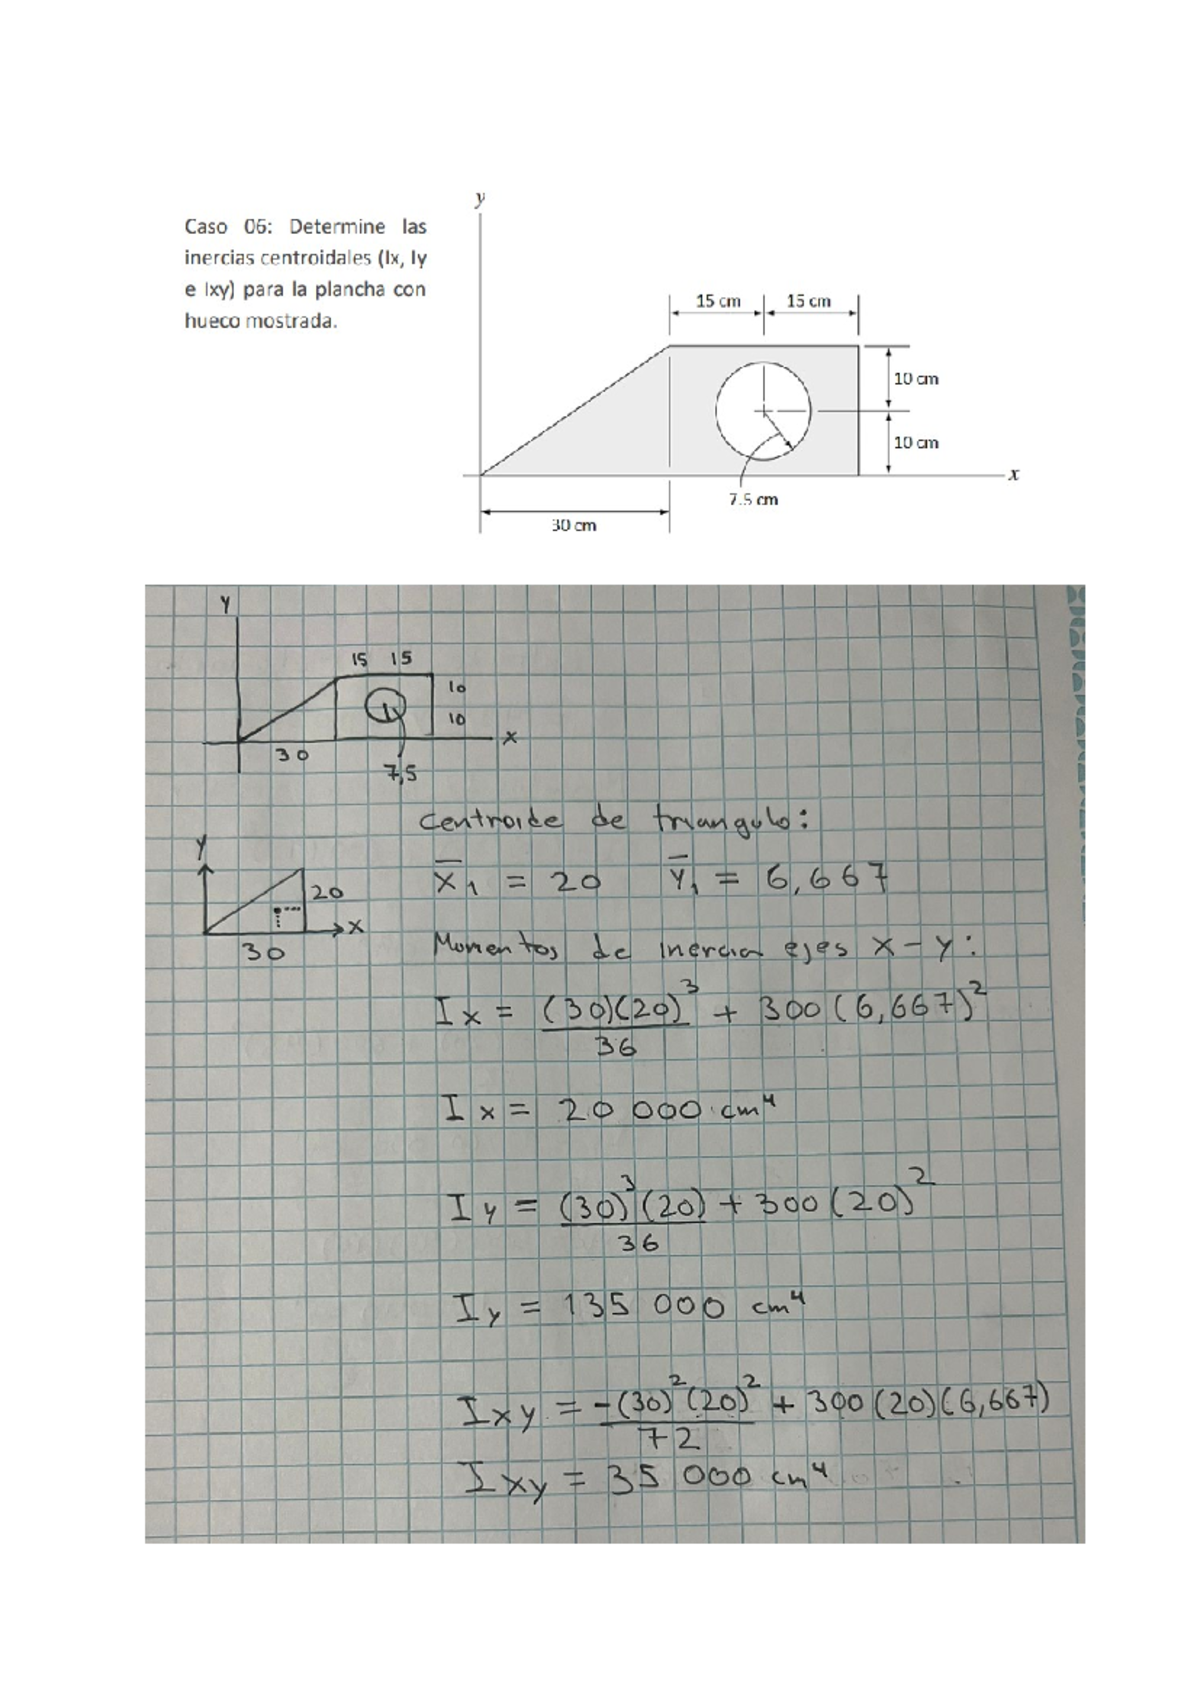 y
Caso 06: Determine las
inercias centroidales (Ix, Iy
e Ixy) para la plancha con
hueco mostrada.
15 cm 15 cm
10 cm
10 cm
x
7.5 cm
30 cm
Y
15 15
10
10
30
x
7,5
Centroide de triangulo:
Y
20
X̄₁ = 20 Ȳ₁ = 6,667
x
30
Momentos de inercia ejes x-y:
Ix = (30)(20)³/36 + 300(6,667)²
Ix = 20 000 cm⁴
Iy = (30)³(20)/36 + 300(20)²
Iy = 135 000 cm⁴
Ixy = -(30)²(20)²/72 + 300(20)(6,667)
Ixy = 35 000 cm⁴